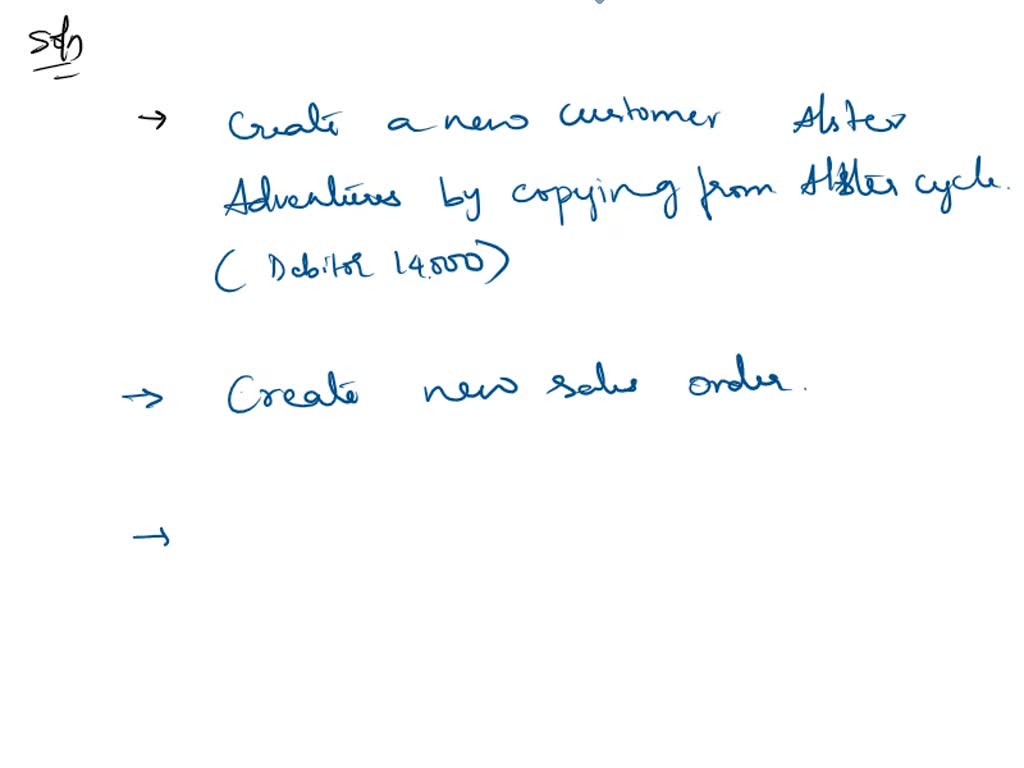 Soln
→ Create a new customer Alster
Adventures by copying from Alster cycle.
( Debitor 14000)
→ Create new sales order.
→